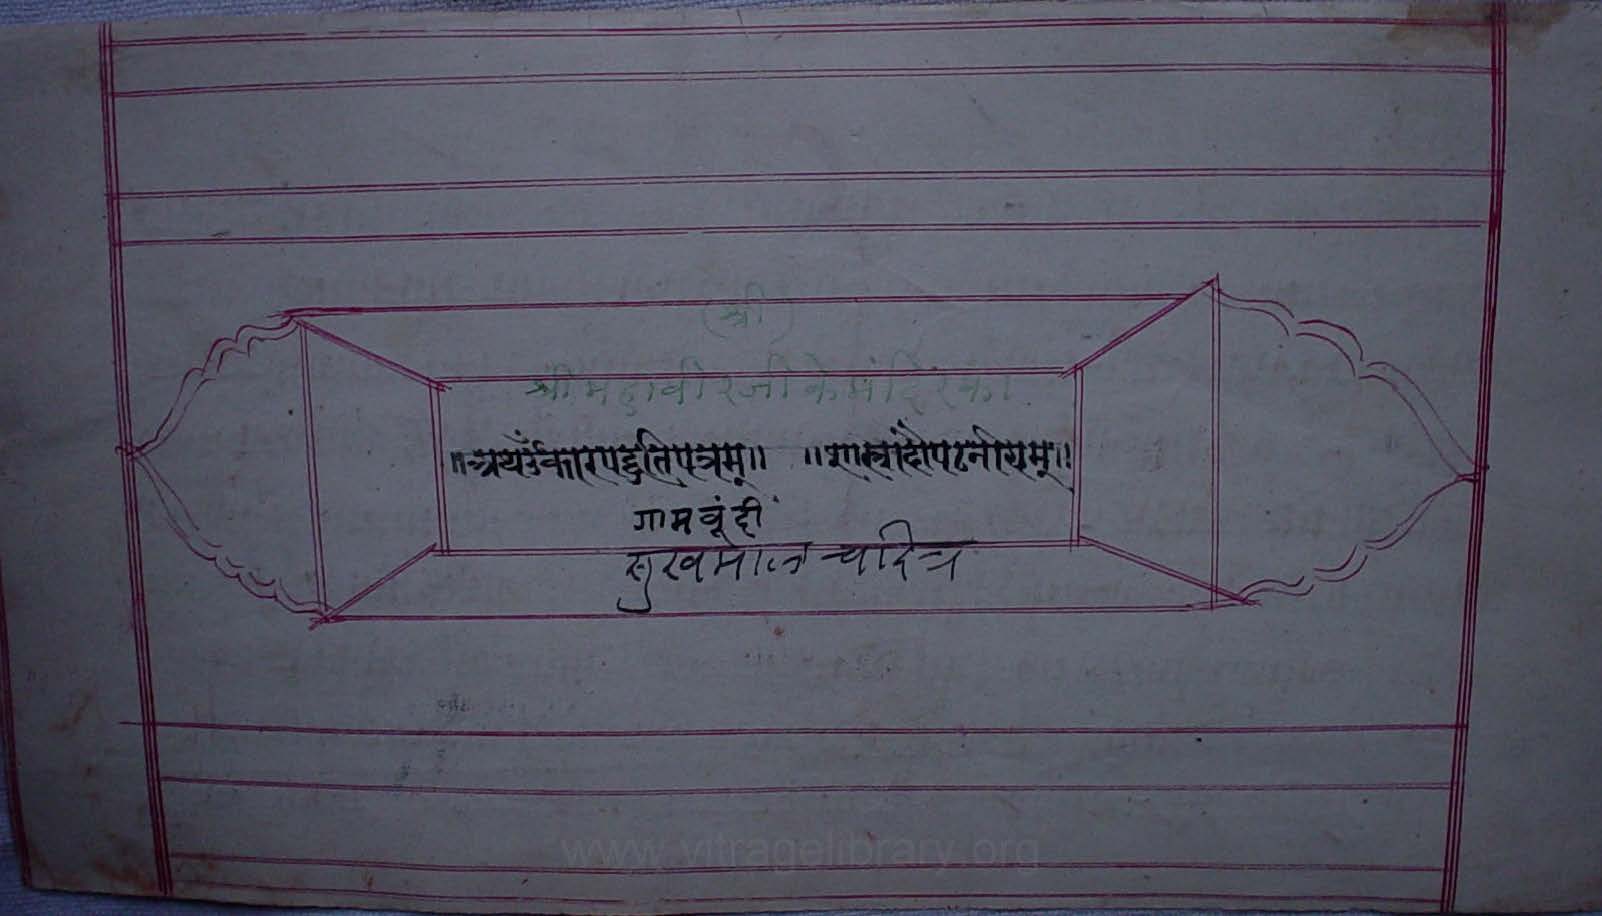 (श्री)
श्री महावीरजी के मंदिर का
॥अथॐकारपद्धतिपत्रम्॥ ॥शास्त्रादौपठनीयम्॥
गाम बूंदी
सुखमाल चरित्र
www.vitragelibrary.org